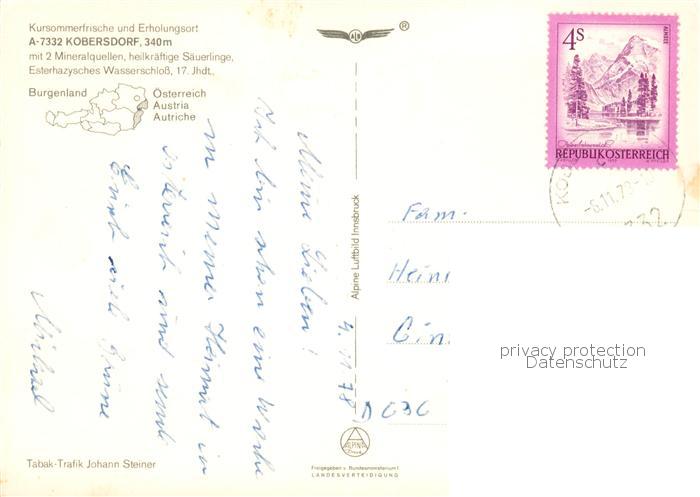 Kursommerfrische und Erholungsort
A-7332 KOBERSDORF, 340m
mit 2 Mineralquellen, heilkräftige Säuerlinge,
Esterhazysches Wasserschloß, 17. Jhdt.,
Burgenland
Österreich
Austria
Autriche
®
4S
ALMSEE
REPUBLIK ÖSTERREICH
-6.11.78
4.11.78
Meine Lieben!
Ich bin schon eine Woche
in meiner Heimat in
Österreich und
Euch viele Grüsse
Alpine Luftbild Innsbruck
Fam.
Hein
D
privacy protection
Datenschutz
Tabak-Trafik Johann Steiner
ALPINE
Freigegeben v. Bundesministerium f.
LANDESVERTEIDIGUNG